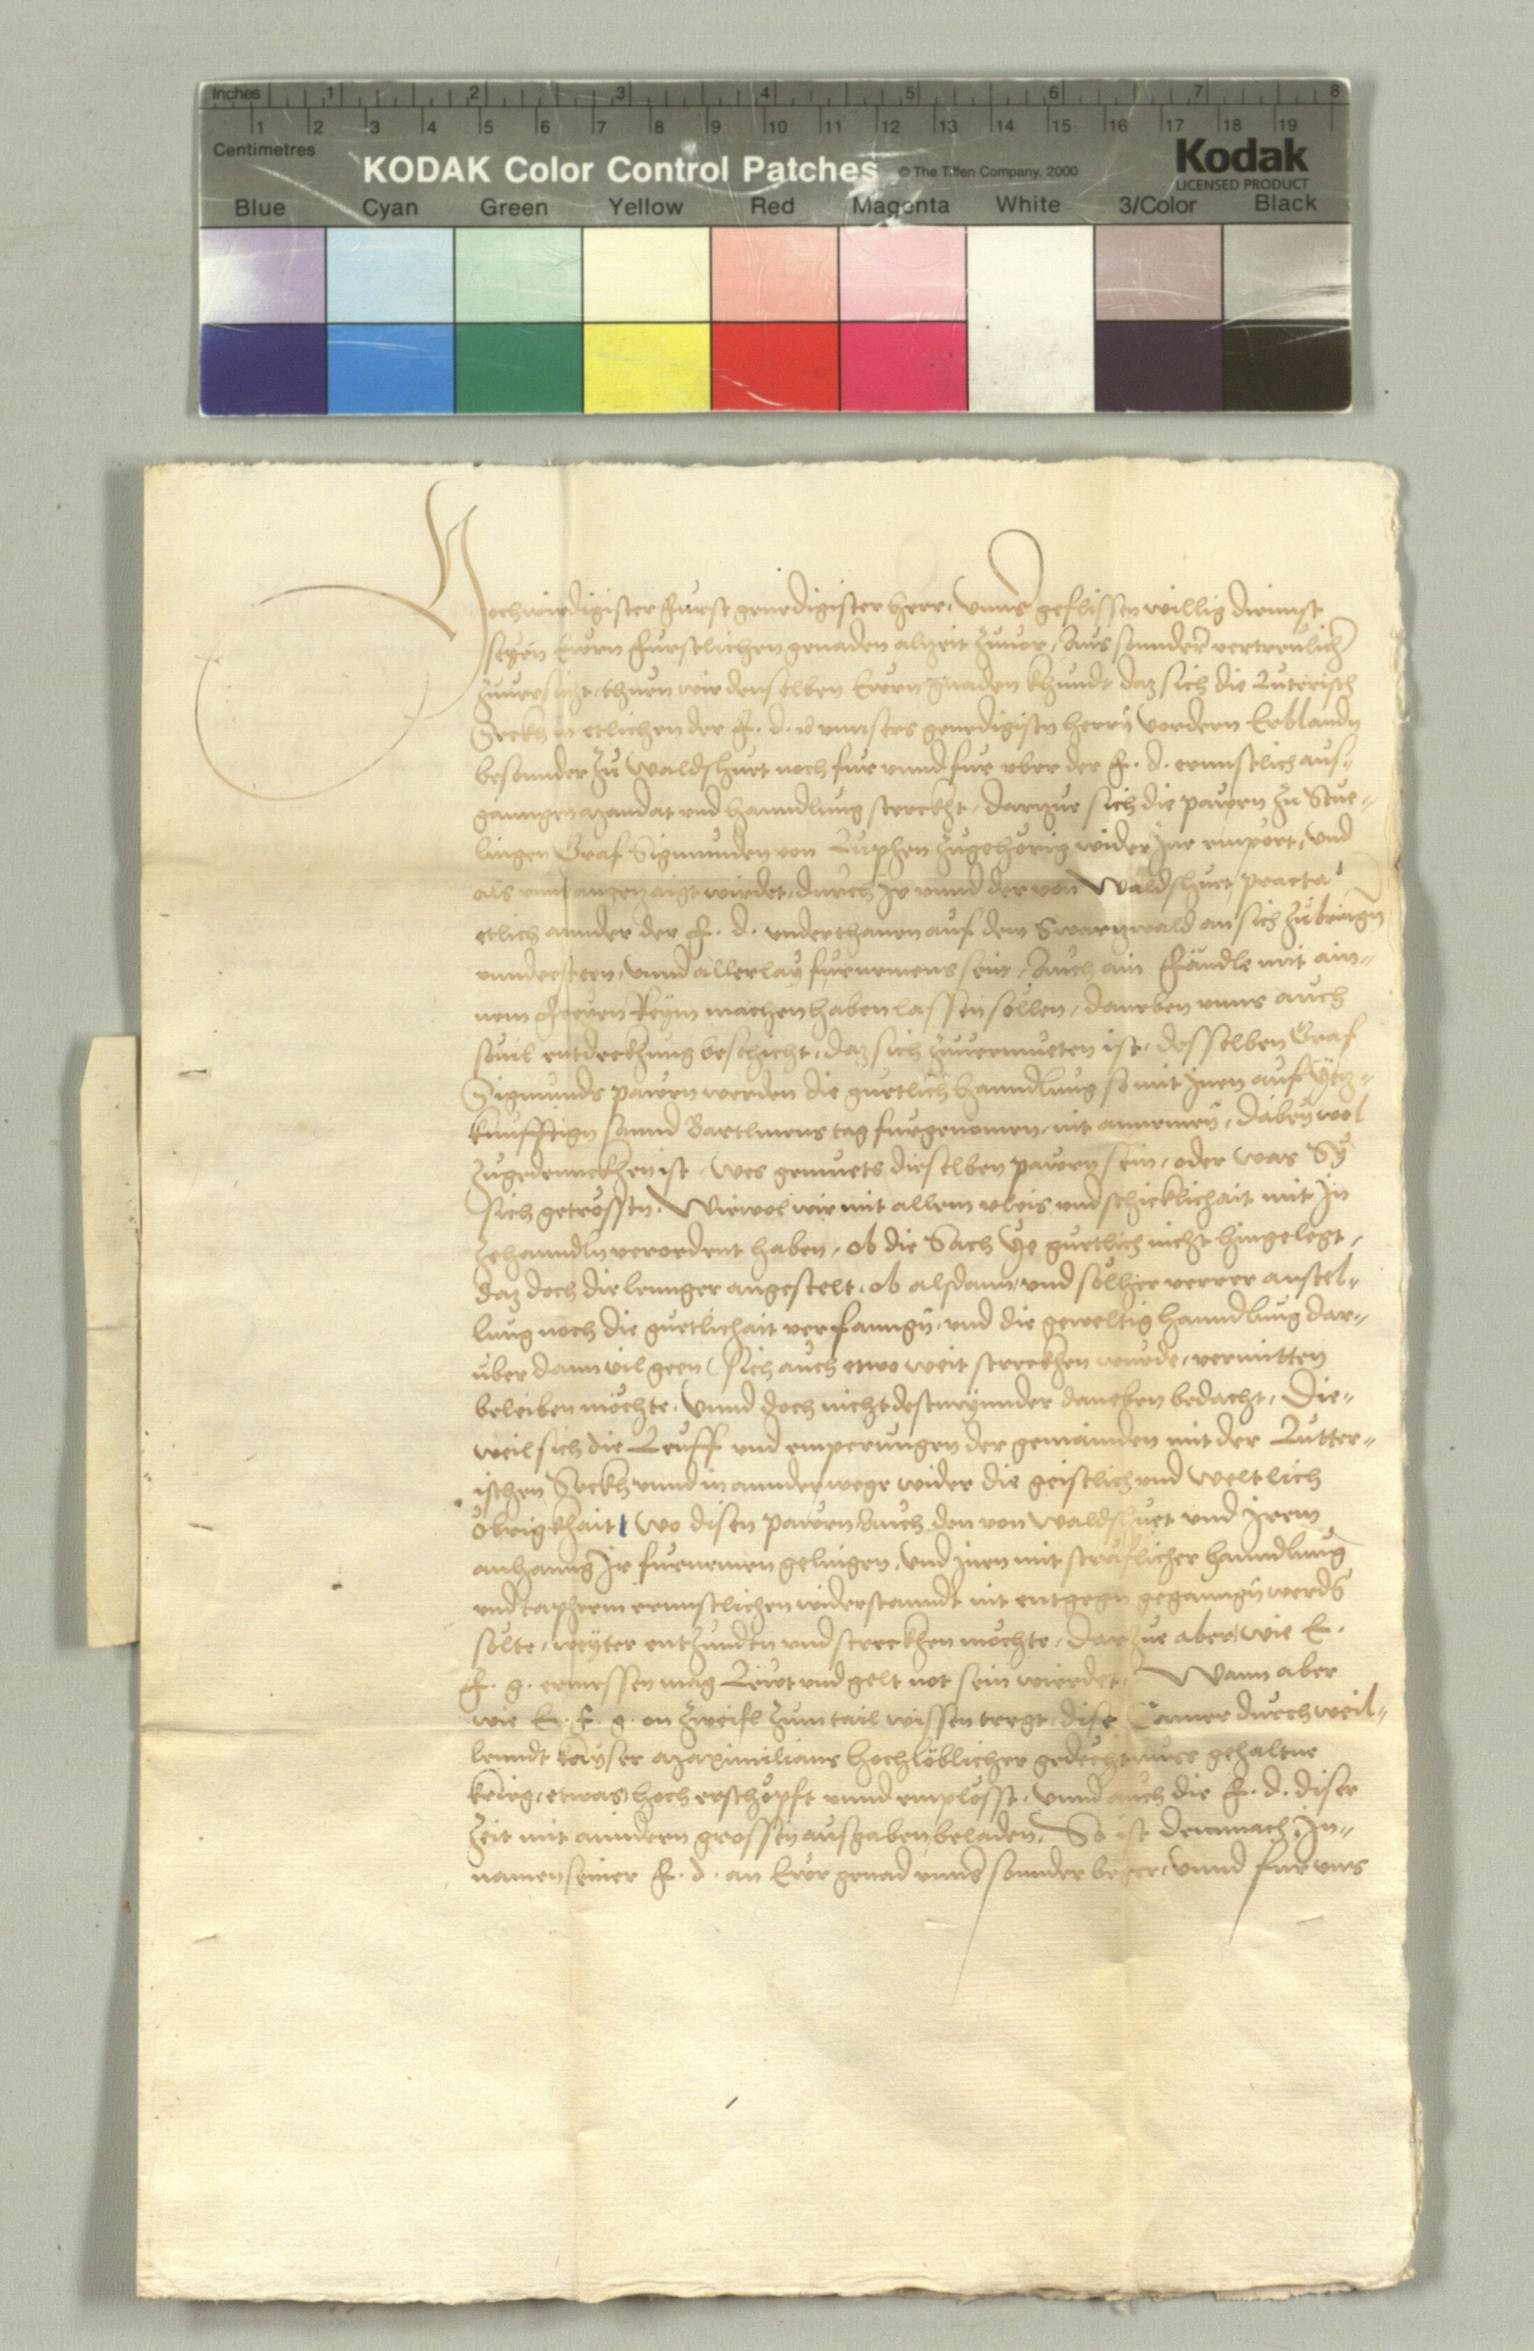 Inches 1 2 3 4 5 6 7 8
1 2 3 4 5 6 7 8 9 10 11 12 13 14 15 16 17 18 19
Centimetres
KODAK Color Control Patches © The Tiffen Company, 2000 Kodak
LICENSED PRODUCT
Blue Cyan Green Yellow Red Magenta White 3/Color Black
Hochwirdigister Furst genedigister herr, Unns geflissen willig diennst
seyen Ewrn Furstlichen genaden alzeit zuuor, Aus sonnder vertreulich
zuuersicht, thuen wir derselben Ewrn gnaden khundt daz sich die Luterisch
Seckh in etlichen der F. d. unnsers genedigisten herrn vordern Erblandn
besonnder zu Waldshuet noch fur unnd fur uber der F. d. ernnstlich aus-
ganngen Mandat und hanndlung streckht, darzue sich die pawrn zu Stue-
lingen Graf Sigmunden von Luphen zugehorig wider Jne emport, und
als unns angezaigt wirdet, durch Jr unnd der von Waldshuet practa
etlich annder der F. d. underthanen auf dem Swarzwald an sich zubringn
unndersteen, unnd allerlay furnemens sein, Auch ain Fändle mit ain-
nem Reym machen haben lassen sollen, daneben unns auch
souil entdeckhung beschicht, daz sich zuuermueten ist, desselben Graf
Sigmunds pawrn werden die guetlich hanndlung so mit Jnen auf Yetz-
kunfftign sannd Bartlmeus tag furgenomen, nit annemen, dabey wol
zugedennckhen ist, wes gemuets dieselben pawrn sein, oder was Sy
sich getrössten. Wiewol wir mit allem vleis und schicklichait mit Jn
zehanndln verordent haben, ob die Sach Ye guetlich nicht hingelegt,
daz doch die lennger angestelt, ob alsdann, und solher verrer anstel-
lung noch die guetlichait verfanngn, und die geweltig hanndlung dar-
über dann vil geen, sich auch etwo weit streckhen wurde, vermitten
beleiben möchte. Unnd doch nicht destmynnder daneben bedacht, Die-
weil sich die Leuff und emperungen der gemainden mit der Lutter-
ischen Seckh unnd in annder wege wider die geistlich und weltlich
öbrigkhait, wo disen pawrn, auch den von Waldshuet und Jrem
anhanng Jr furnemen gelingen, und Jnen mit straflicher hanndlung
und tapherm ernnstlichen widerstanndt nit entgegn gegangn werdn
solte, weyter entzundtn und streckhen möchte, darzue aber, wie E.
F. g. ermessen mag Lewt und gelt not sein wierdet. Wann aber
wie E. F. g. on Zweifl zum tail wissen tregt, dise Camer durch weil-
lenndt kayser Maximilians hochlöblicher gedechtnuss gehaltne
krieg, etwas hoch erschöpft unnd emplösst, unnd auch die F. d. diser
Zeit mit anndern grossen ausgaben beladen. So ist demnach Jn-
namen seiner F. d. an Ewr genad unns sonnder beger, unnd fur uns